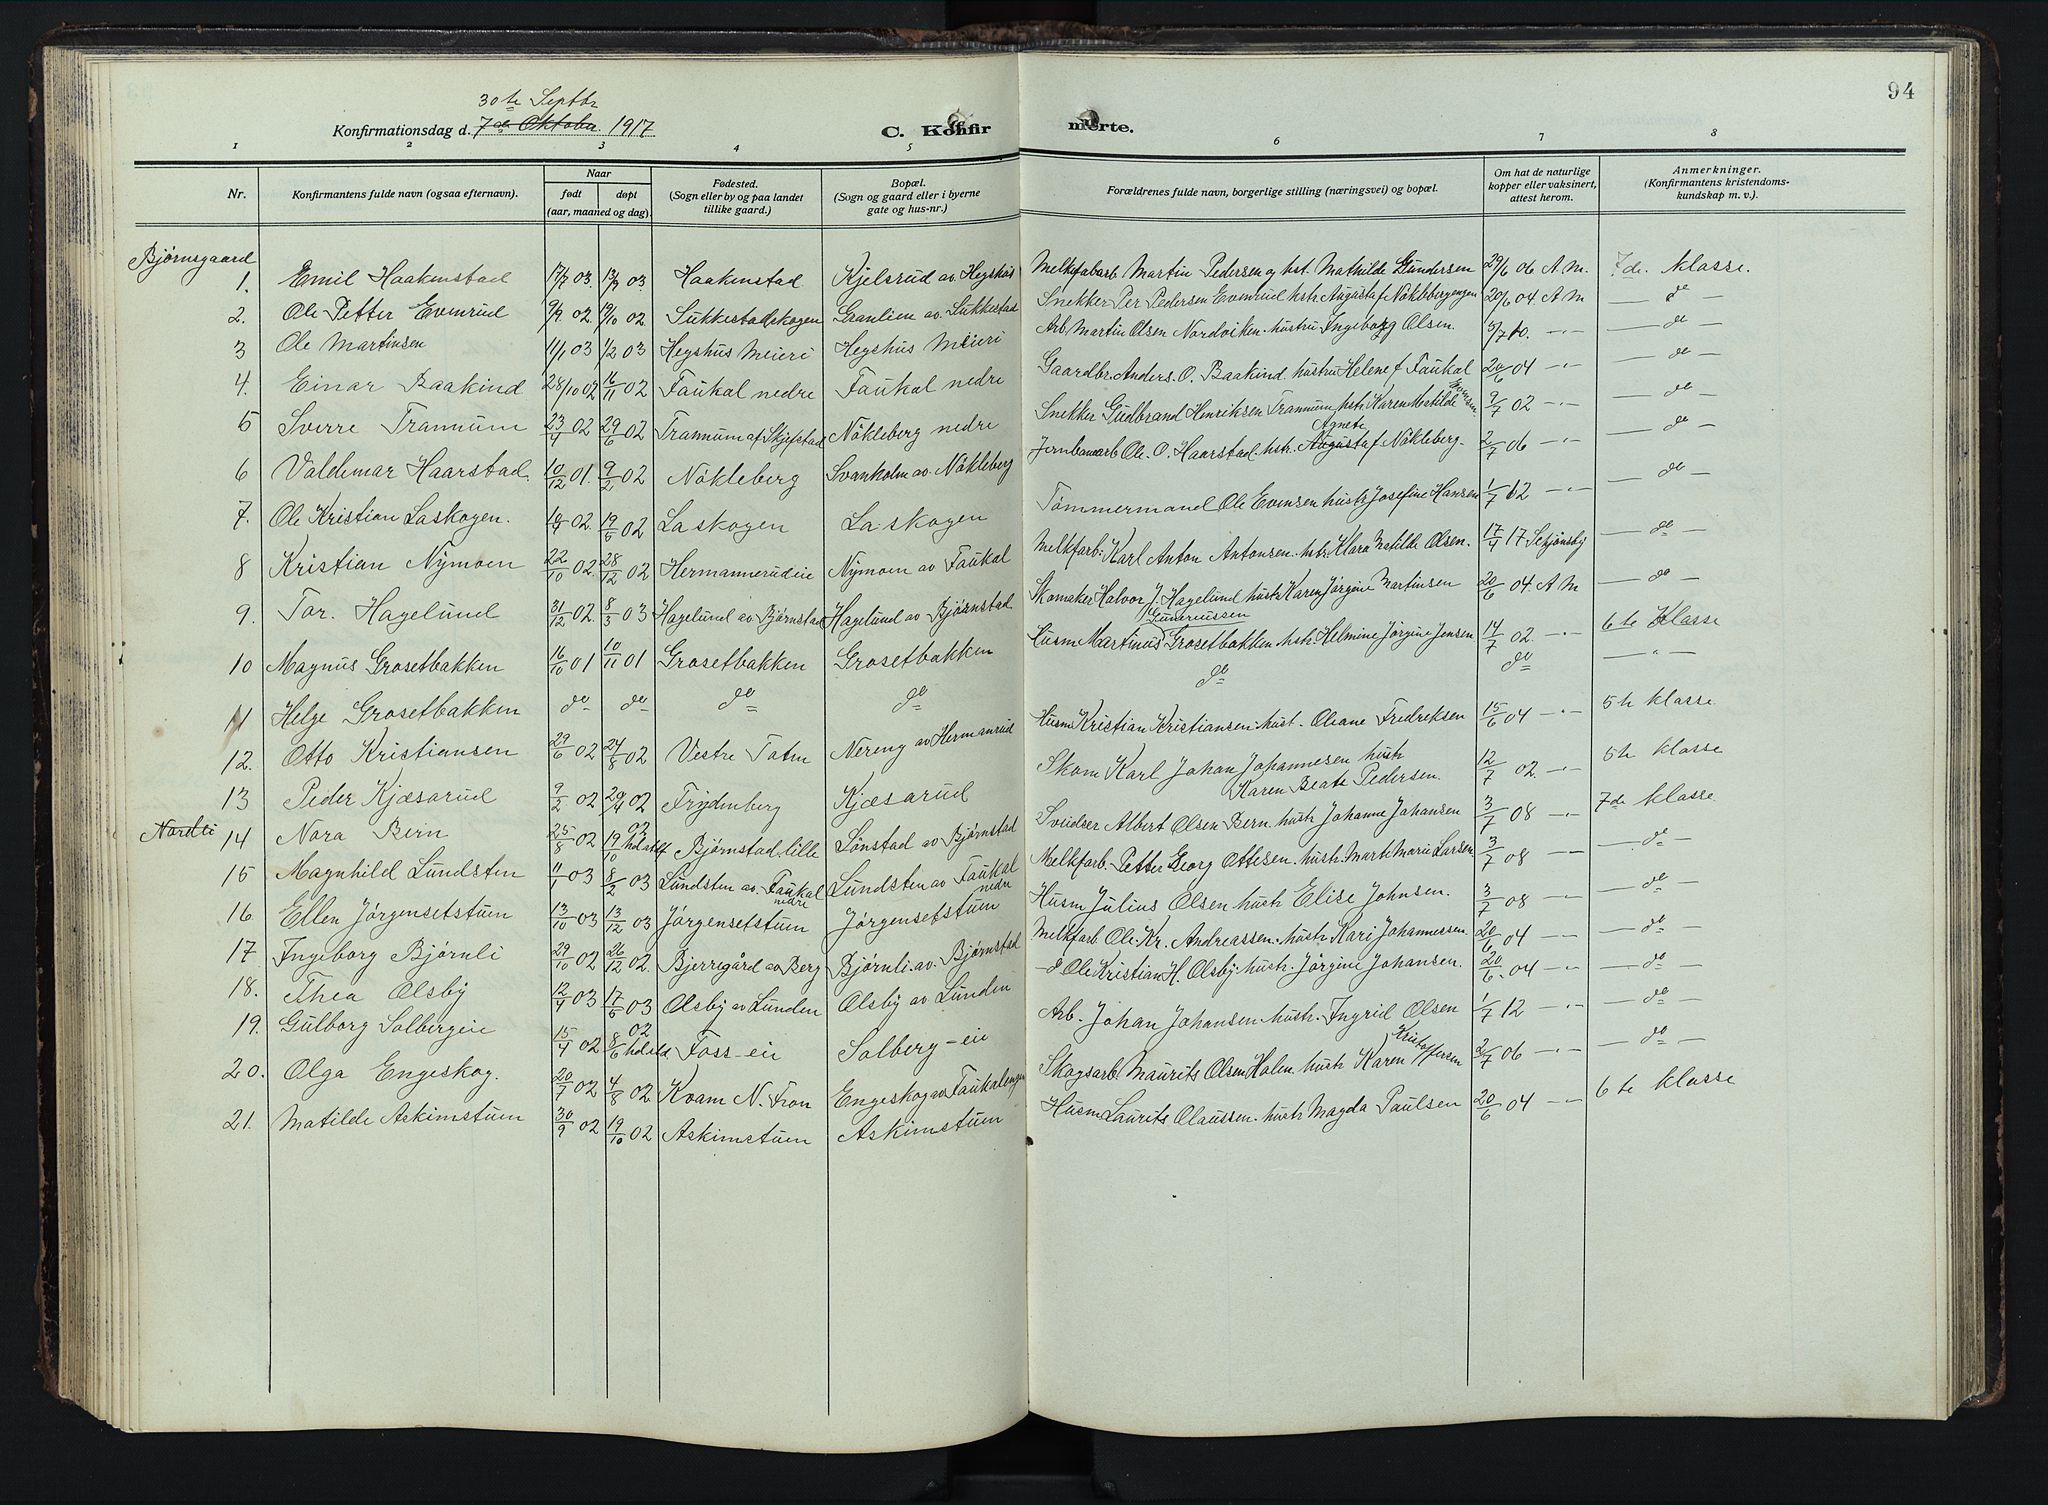 94
30te Septbr
Konfirmationsdag d. 7de Oktober 1917
C. Konfirmerte.
1 2 3 4 5 6 7 8
Nr. Konfirmantens fulde navn (ogsaa efternavn). Naar født døpt (aar, maaned og dag). Fødested. (Sogn eller by og paa landet tillike gaard.) Bopæl. (Sogn og gaard eller i byerne gate og hus-nr.) Forældrenes fulde navn, borgerlige stilling (næringsvei) og bopæl. Om hat de naturlige kopper eller vaksinert, attest herom. Anmerkninger. (Konfirmantens kristendomskundskap m. v.).
Bjørnsgaard
1. Emil Haakenstad 17/7 03. 13/9 03. Haakenstad Kjelsrud av Hegshus Melkefabarb Martin Pedersen og hst. Mathilde Gundersen 29/6 06 A.M. 7de klasse.
2. Ole Petter Evenrud 9/9 02. 19/10 02 Sukkestadskogen Granlien av Sukkestad Snekker Per Pedersen Evenrud hstr Augusta f Nøklebergengen 20/6 04 A M — do —
3 Ole Martinsen 11/1 03 1/2 03 Hegshus Meieri Hegshus Meieri Arb. Martin Olsen Nordviken hustru Ingeborg Olsen. 3/7 10. -"- — do —
4. Einar Baakind 28/10 02 16/11 02 Faukal nedre Faukal nedre Gaardbr. Anders O. Baakind hustru Helene f Faukal 20/6 04 -"- — do —
5 Sverre Trannum 23/4 02 29/6 02 Trannum af Skjefstad Nøkleberg nedre Snekker Gudbrand Henriksen Trannum hstr Karen Matilde Evensen 9/7 02 -"- — do —
6 Valdemar Haarstad. 10/12 01. 9/2 02 Nøkleberg Svanholm av Nøkleberg Jernbanearb Ole O. Haarstad hstr. Augusta Agnete f Nøkleberg. 2/7 06 -"- — do —
7. Ole Kristian Laskogen. 02. 19/6 02 Laskogen Laskogen Tømmermand Ole Evensen hustr Josefine Hansen 1/7 12 -"- — do —
8 Kristian Nymoen 22/10 02. 28/12 02 Hermannerudeie Nymoen av Faukal Melkfarb: Karl Anton Antonsen hstr. Klara Matilde Olsen. 17/4 17 Schjønsby — do —
9. Tor. Hagelund 31/12 02. 8/3 03 Hagelund av Bjørnstad Hagelund av Bjørnstad Skomaker Halvor J. Hagelund hustr Karen Jørgine Martinsen 20/6 04. A M — do —
10 Magnus Grosetbakken 16/10 01 10/11 01 Grosetbakken Grosetbakken Husm Martinus Gunerius­sen Grosetbakken hstr. Helmine Jørgine Jensen 14/7 02. -"- 6te klasse
11 Helge Grosetbakken do do do do do do — " —
12. Otto Kristiansen 29/6 02 24/8 02 Vestre Toten Nereng av Hermanrud Husm Kristian Kristiansen hust. Oleane Fredriksen 15/6 04 -"- 5te klasse
13 Peder Kjæsarud 9/2 02 20/4 02 Frydenberg Kjæsarud Skom Karl Johan Johannesen hustr Karen Beate Pedersen. 12/7 02. -"- 5te klasse
Nordli
14 Nora Bern 25/8 02 19/10 02 Bjørnstad lille Lønstad av Bjørnstad Sveidser Albert Olsen Bern hustr Johanne Johansen 3/7 08 -"- 7de klasse
15 Magnhild Lundsten 11/1 03 8/2 03 Lundsten av Faukal nedre Lundsten av Faukal nedre Melkfarb. Petter Georg Ottesen hustr. Marte Marie Larsen 3/7 08 — do —
16 Ellen Jørgensetstuen 13/10 03 13/12 03 Jørgensetstuen Jørgensetstuen Husm Julius Olsen hustr Elise Johnsen. 3/7 08 -"- — do —
17 Ingeborg Bjørnli 29/10 02 26/12 02. Bjerregård av Berg Bjørnli av. Bjørnstad Melkfarb Ole Kr. Andreassen hustr Kari Johannessen 20/6 04 -"- — do —
18. Thea Olsby 12/4 03 17/6 03 Olsby av Lunden Olsby av Lunden do Ole Kristian H. Olsby hustr. Jørgine Johansen. 20/6. 04 -"- — do —
19. Gulborg Solbergeie 15/4 02 8/6 02 Foss-eie Solberg-eie Arb. Johan Johansen hustr. Ingrid Olsen 1/7 12 -"- — do —
20. Olga Engeskog. 20/7 02 4/8 02 Kvam N. Fron Engeskog av Faukalengen Skogsarb. Maurits Olsen Holen hustr Karen Kristoffersen 2/7 06 -"- — do —
21. Matilde Askimstuen 30/9 02 19/10 02 Askimstuen Askimstuen Husm Laurits Olaussen hustr Magda Paulsen 20/6 04 -"- 6te klasse